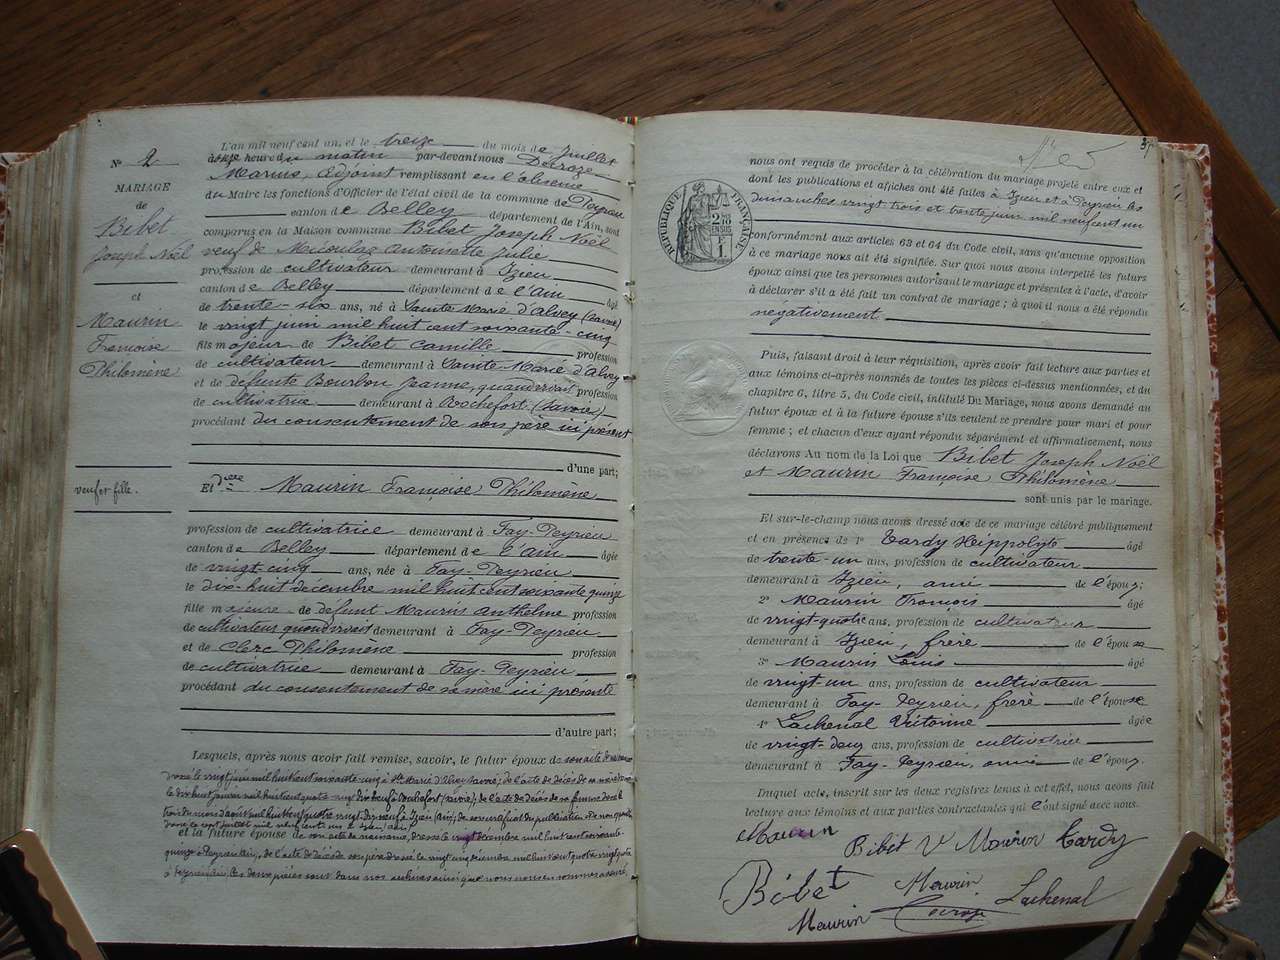 N° 2
MARIAGE
de
Bibet
Joseph Noël
et
Maurin
Françoise
Philomène
veuf et fille.
L'an mil neuf cent un, et le treize du mois de Juillet
à heure du matin par-devant nous Derroze
Marius, adjoint remplissant en l'absence
du Maire les fonctions d'Officier de l'état civil de la commune de Peyrieu
canton de Belley département de l'Ain, sont
comparus en la Maison commune Bibet Joseph Noël
veuf de Micoulaz Antoinette Julie
profession de cultivateur demeurant à Izieu
canton de Belley département de l'ain âgé
de trente-six ans, né à Sainte Marie d'Alvey (Savoie)
le vingt juin mil huit cent soixante-cinq
fils majeur de Bibet Camille profession
de cultivateur demeurant à Sainte-Marie d'Alvey
et de défunte Bourbon Jeanne, quand vivait profession
de cultivatrice demeurant à Rochefort (Savoie)
procédant du consentement de son père ici présent
d'une part;
Et Maurin Françoise Philomène
profession de cultivatrice demeurant à Fay-Peyrieu
canton de Belley département de l'ain âgée
de vingt-cinq ans, née à Fay-Peyrieu
le dix-huit décembre mil huit cent soixante quinze
fille majeure de défunt Maurin Anthelme profession
de cultivateur quand vivait demeurant à Fay-Peyrieu
et de Clerc Philomène profession
de cultivatrice demeurant à Fay-Peyrieu
procédant du consentement de sa mère ici présente
d'autre part;
Lesquels, après nous avoir fait remise, savoir, le futur époux de son acte de naissance
et la future épouse de son acte de naissance, dressé le vingt décembre mil huit cent soixante
quinze à Peyrieu
37
RÉPUBLIQUE FRANÇAISE
nous ont requis de procéder à la célébration du mariage projeté entre eux et
dont les publications et affiches ont été faites à Izieu et à Peyrieu les
dimanches vingt trois et trente juin mil neuf cent un
conformément aux articles 63 et 64 du Code civil, sans qu'aucune opposition
à ce mariage nous ait été signifiée. Sur quoi nous avons interpellé les futurs
époux ainsi que les personnes autorisant le mariage et présentes à l'acte, d'avoir
à déclarer s'il a été fait un contrat de mariage; à quoi il nous a été répondu
négativement
Puis, faisant droit à leur réquisition, après avoir fait lecture aux parties et
aux témoins ci-après nommés de toutes les pièces ci-dessus mentionnées, et du
chapitre 6, titre 5, du Code civil, intitulé Du Mariage, nous avons demandé au
futur époux et à la future épouse s'ils veulent se prendre pour mari et pour
femme; et chacun d'eux ayant répondu séparément et affirmativement, nous
déclarons Au nom de la Loi que Bibet Joseph Noël
et Maurin Françoise Philomène
sont unis par le mariage.
Et sur-le-champ nous avons dressé acte de ce mariage célébré publiquement
et en présence de 1° Tardy Hippolyte âgé
de trente-un ans, profession de cultivateur
demeurant à Izieu, ami de l'époux;
2° Maurin François âgé
de vingt-quatre ans, profession de cultivateur
demeurant à Izieu, frère de l'épouse
3° Maurin Louis âgé
de vingt-un ans, profession de cultivateur
demeurant à Fay-Peyrieu, frère de l'épouse
4° Lachenal Victorine âgée
de vingt-deux ans, profession de cultivatrice
demeurant à Fay-Peyrieu, amie de l'époux
Duquel acte, inscrit sur les deux registres tenus à cet effet, nous avons fait
lecture aux témoins et aux parties contractantes qui l'ont signé avec nous.
Maurin Bibet Maurin Tardy
Bibet Maurin Lachenal
Maurin